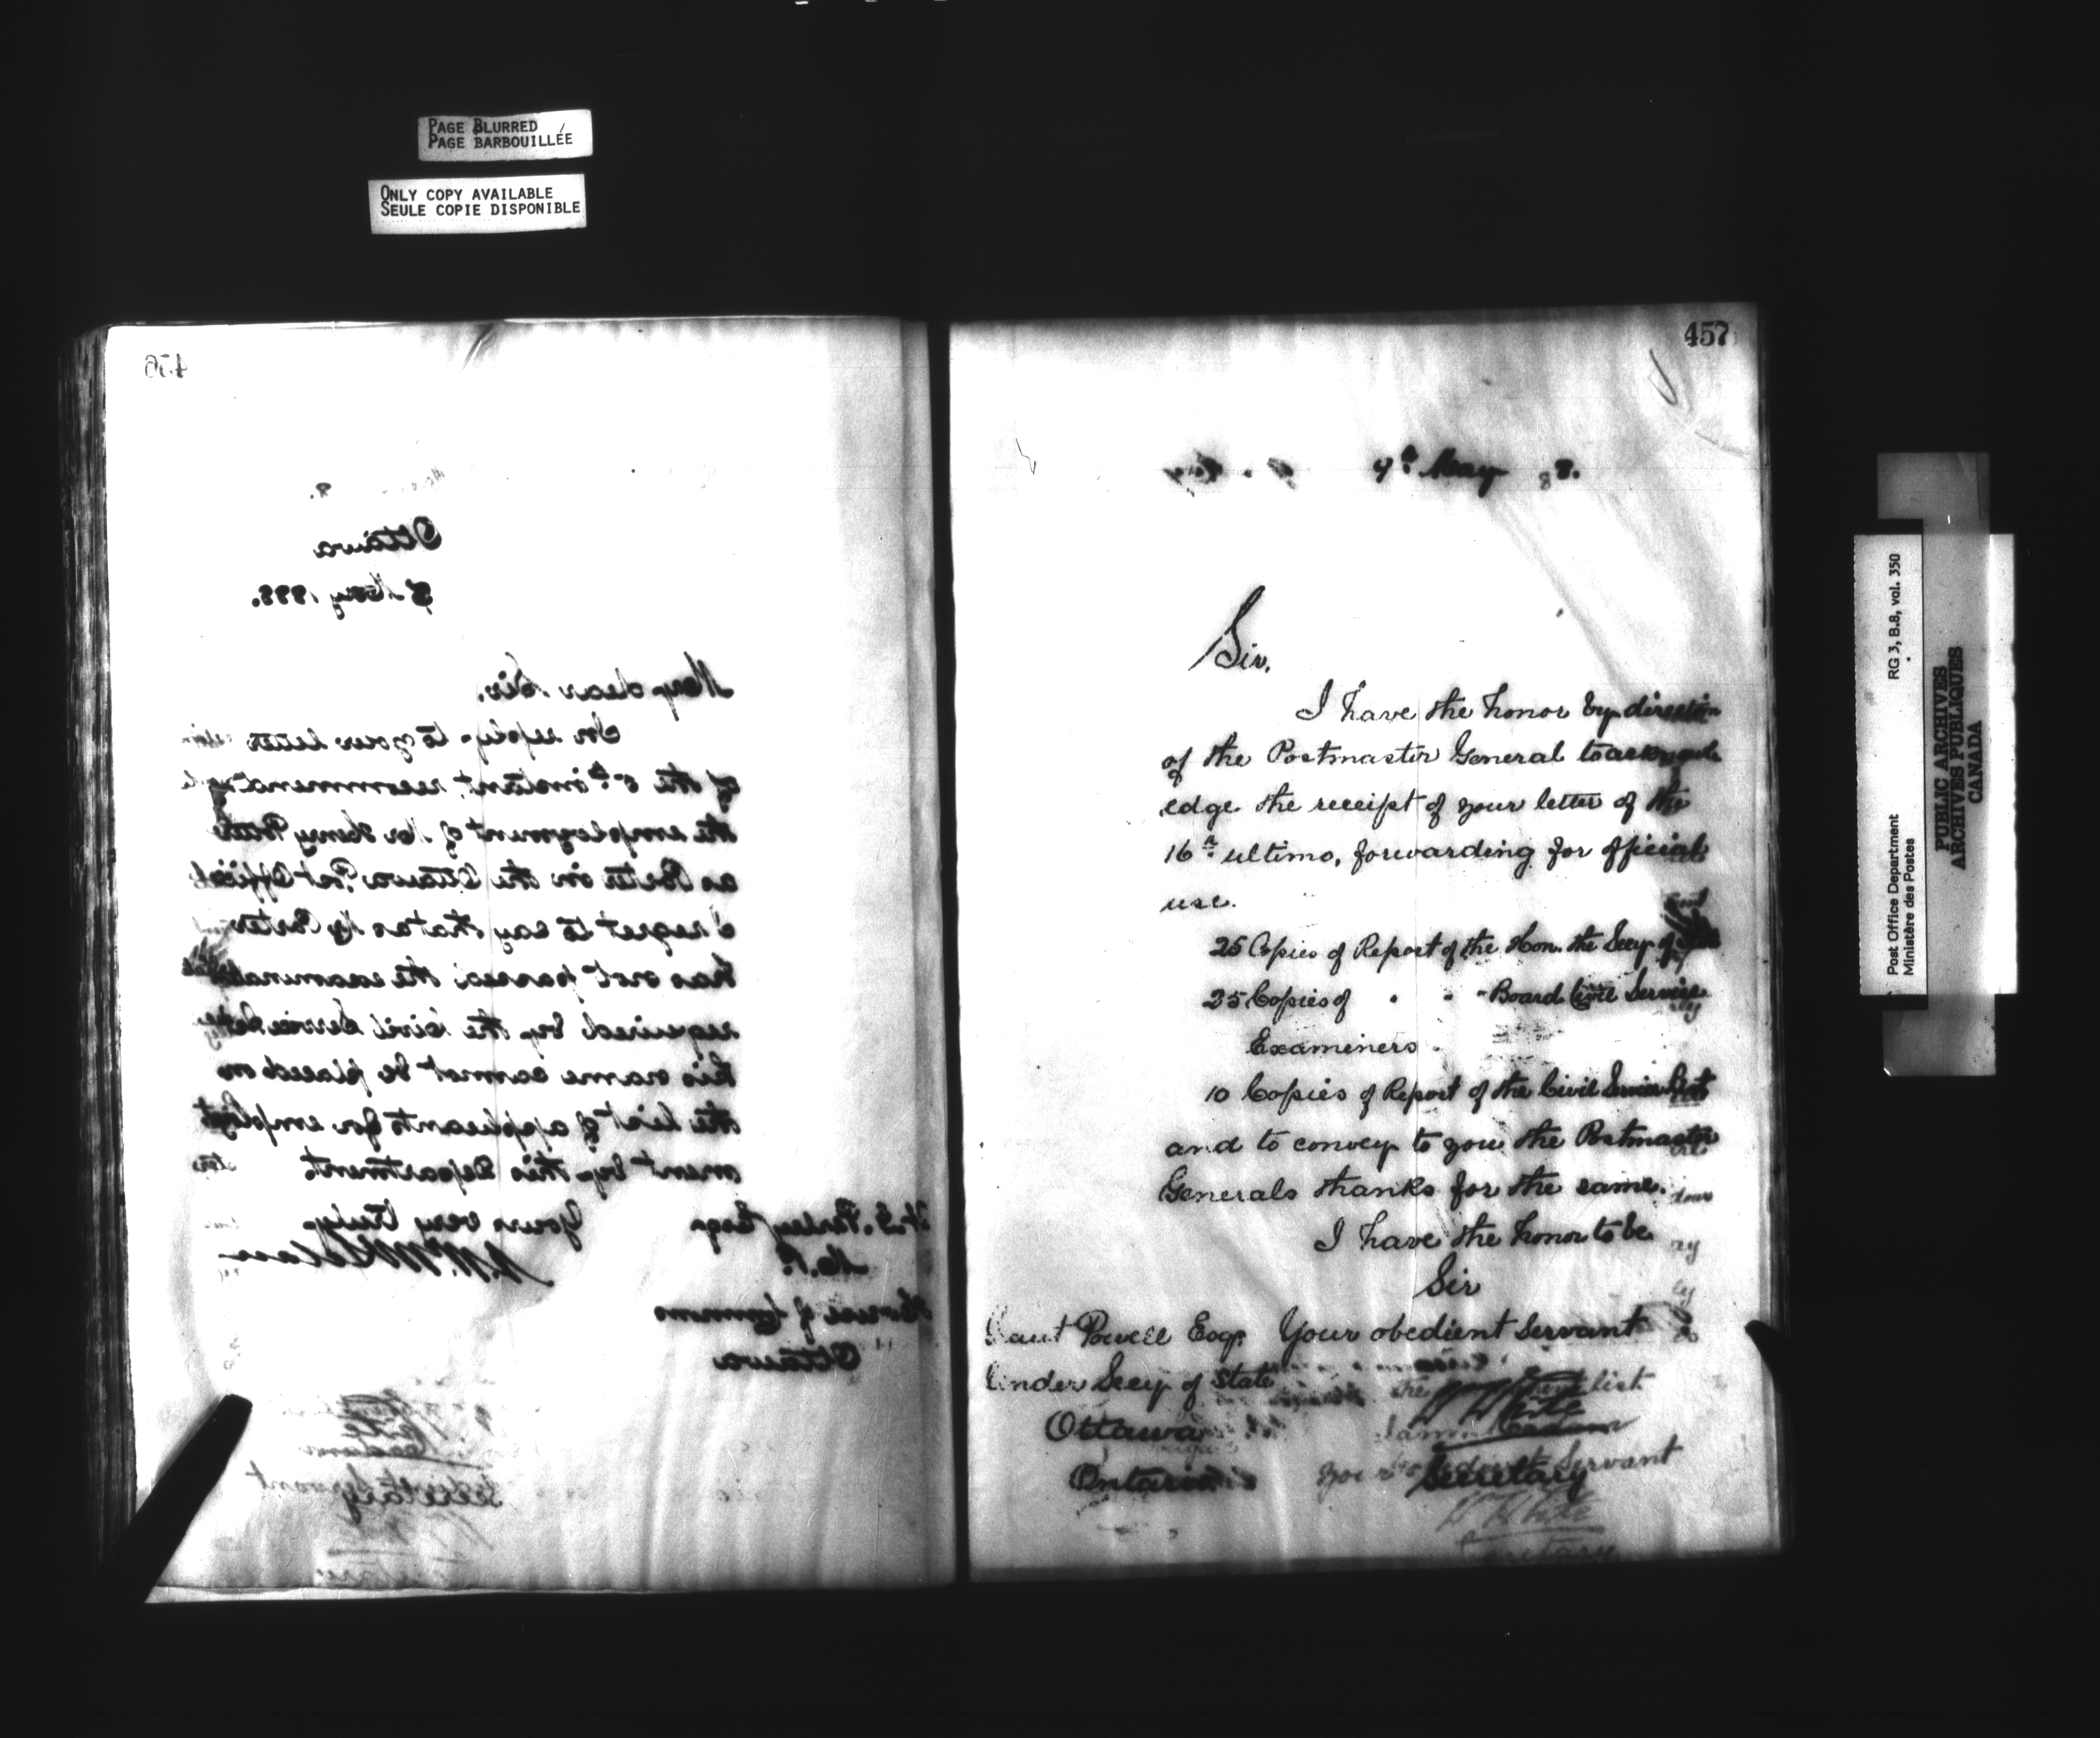 PAGE BLURRED
PAGE BARBOUILLÉE
ONLY COPY AVAILABLE
SEULE COPIE DISPONIBLE
456
Ottawa
8 May 1888.
My dear Sir,
In reply to your letter
of the 5th instant, recommending
the employment of Mr Henry
as Porter in the Ottawa Post Office
I regret to say that as Mr
has not passed the
required by the Civil Service
his name cannot be placed on
the list of applicants for employ
ment by this Department
Yours very truly
A. W. McLelan
Perley Esq
M. P.
House of Commons
Ottawa
457
9th May 88.
Sir,
I have the honor by direction
of the Postmaster General to acknowl
edge the receipt of your letter of the
16th ultimo, forwarding for official
use.
25 Copies of Report of the Hon. the Secy of State
25 Copies of " " " Board Civil Service
Examiners
10 Copies of Report of the Civil Service List
and to convey to you the Postmaster
Generals thanks for the same.
I have the honor to be
Sir
Grant Powell Esq. Your obedient Servant
Under Secy of State
list
Ottawa
Ontario
Servant
Secretary
W White
Secretary
Post Office Department
Ministère des Postes
RG 3, B.8, vol. 350
PUBLIC ARCHIVES
ARCHIVES PUBLIQUES
CANADA